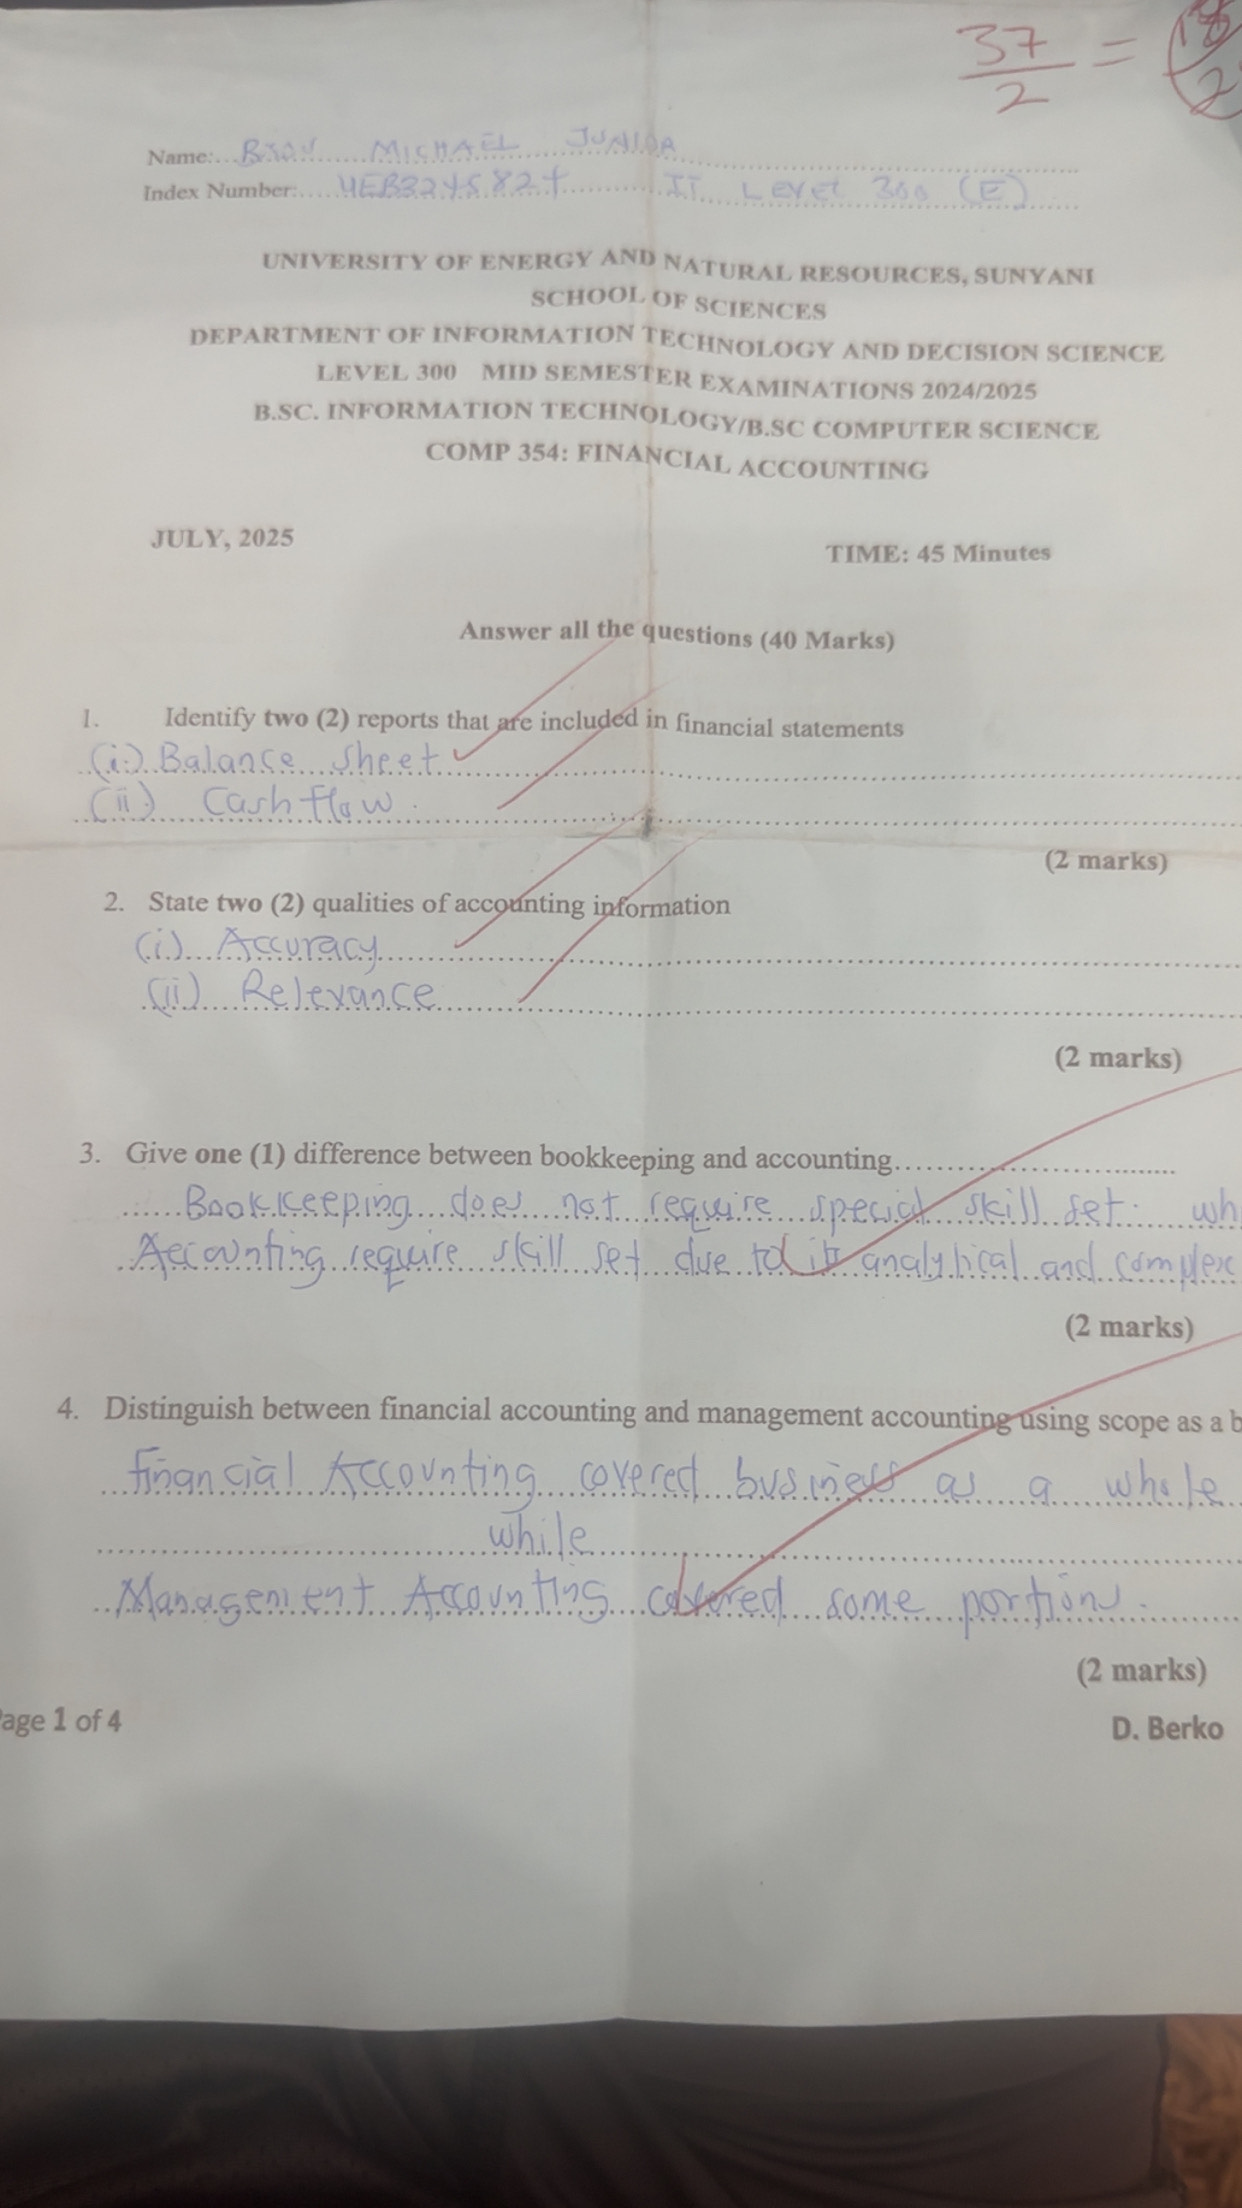 37/2 =
Name: MICHAEL JUNIOR
Index Number: IT Level 300 (E)
UNIVERSITY OF ENERGY AND NATURAL RESOURCES, SUNYANI
SCHOOL OF SCIENCES
DEPARTMENT OF INFORMATION TECHNOLOGY AND DECISION SCIENCE
LEVEL 300 MID SEMESTER EXAMINATIONS 2024/2025
B.SC. INFORMATION TECHNOLOGY/B.SC COMPUTER SCIENCE
COMP 354: FINANCIAL ACCOUNTING
JULY, 2025
TIME: 45 Minutes
Answer all the questions (40 Marks)
1. Identify two (2) reports that are included in financial statements
(i) Balance sheet
(ii) Cashflow.
(2 marks)
2. State two (2) qualities of accounting information
(i) Accuracy
(ii) Relevance
(2 marks)
3. Give one (1) difference between bookkeeping and accounting
Bookkeeping does not require special skill set. wh
Accounting require skill set due to it analytical and complex
(2 marks)
4. Distinguish between financial accounting and management accounting using scope as a b
financial Accounting covered business as a whole
while
Management Accounting covered some portions.
(2 marks)
age 1 of 4
D. Berko